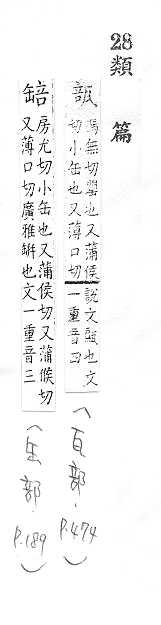 28 類篇
瓿
馮無切罌也又蒲侯說文甂也文
切小缶也又薄口切一重音四
(瓦部. P.474)
䍌
房尤切小缶也又蒲侯切又蒲候切
又薄口切廣雅缾也文一重音三
(缶部. P.189)